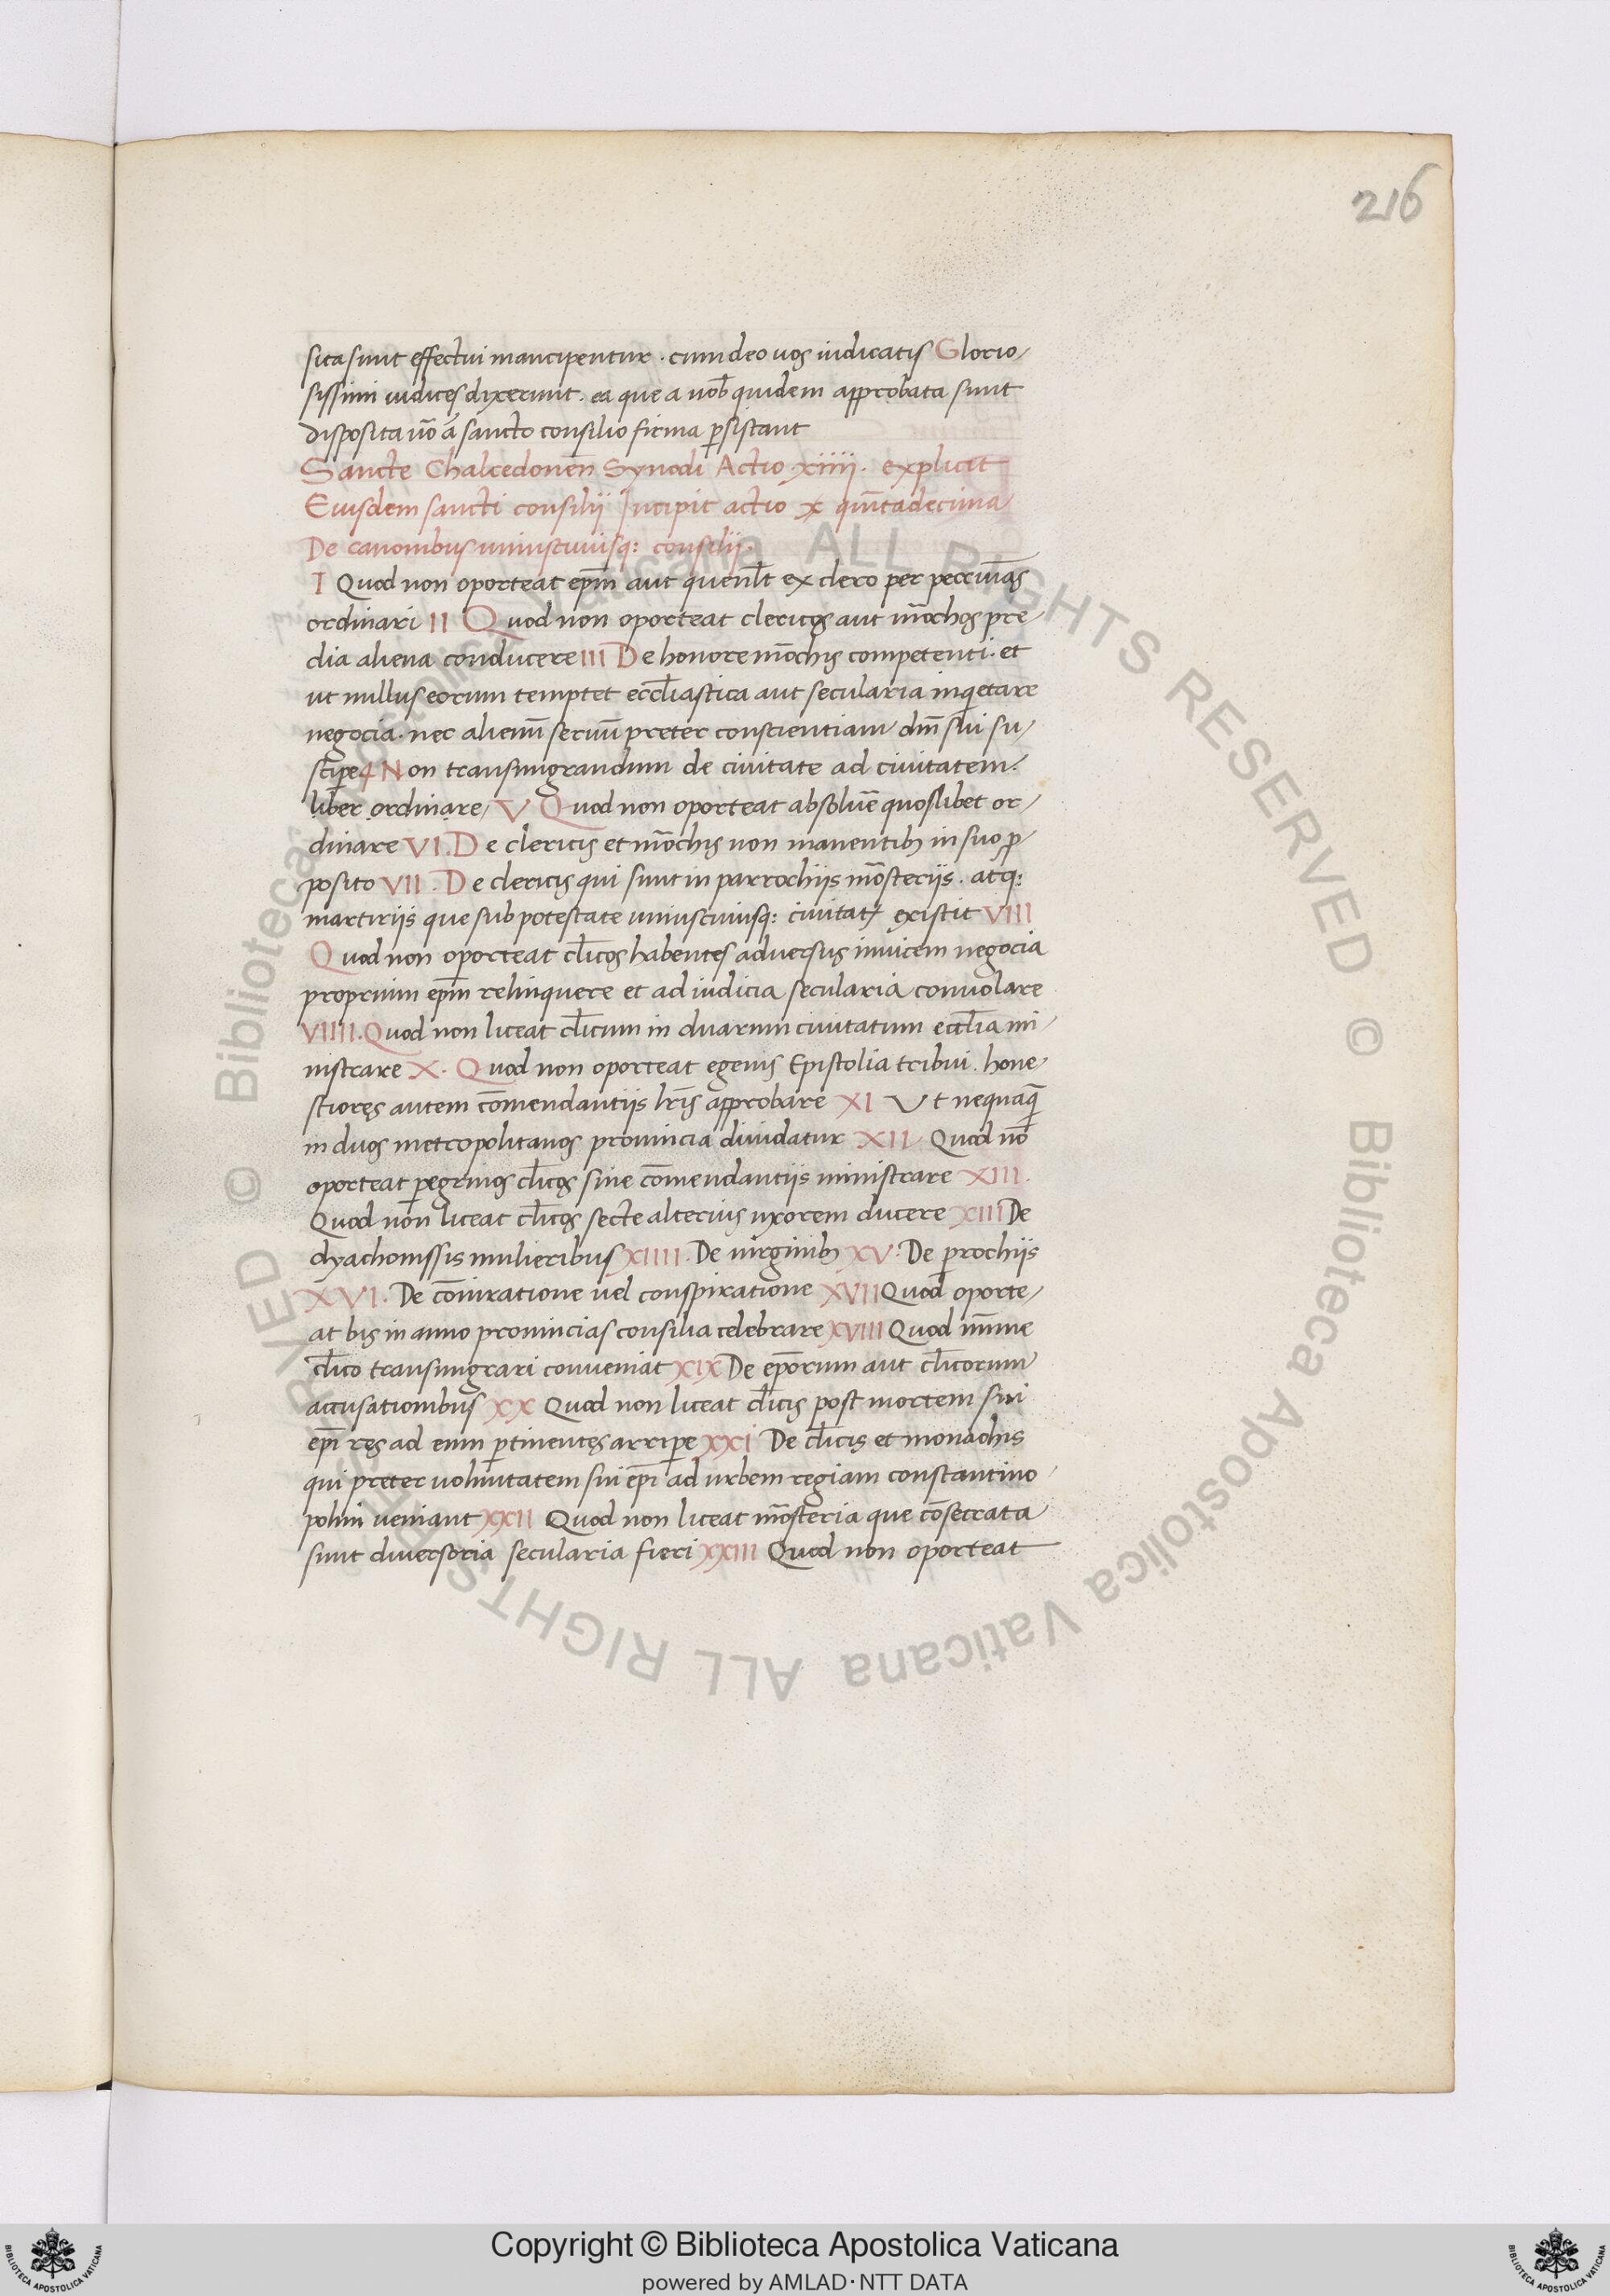 216
sita sunt effectui mancipentur . cum deo uos iudicatis Glorio-
sissimi iudices dixerunt . ea que a nob̄ quidem approbata sunt
disposita ūo a sancto consilio firma p̄sistant
Sancte Chalcedonen̄ Synodi Actio xiiii . explicit
Eiusdem sancti consilii Incipit actio x quītadecima
De canonibus uniuscuiusq: consilii .
I Quod non oporteat ep̄m aut quenl̄t ex clero per peccunias
ordinari II Quod non oporteat clericos aut mōchos pre-
dia aliena conducere III De honore mōchis competenti . et
ut nullus eorum temptet eccl̄iastica aut secularia inq̄etare
negocia . nec alienū seruū preter conscientiam dn̄i sui su-
scip̄e 4 Non transmigrandum de ciuitate ad ciuitatem .
liber ordinare V Quod non oporteat absoluē quoslibet or-
dinare VI . De clericis et mōchis non manentib; in suo p̄-
posito VII . De clericis qui sunt in parrochiis mōsteriis . atq:
martiriis que sub potestate uniuscuiusq: ciuitatꝭ existit VIII
Quod non oporteat cl̄icos habentes aduersus inuicem negocia
proprium ep̄m relinquere et ad iudicia secularia conuolare
VIIII . Quod non liceat cl̄icum in duarum ciuitatum eccl̄ia mi-
nistrare X . Quod non oporteat egenis Epistolia tribui . hone-
stiores autem cōmendantiis lr̄is approbare XI Ut nequaq̄
in duos metropolitanos prouincia diuidatur XII Quod nō
oporteat pegrinos cl̄icos sine cōmendantiis ministrare XIII .
Quod non liceat cl̄icos secte alterius uxorem ducere XIII De
dyachonissis mulieribus XIIII . De uirginib; XV . De prochiis
XVI . De cōniuratione uel conspiratione XVII Quod oporte-
at bis in anno prouincias consilia celebrare XVIII Quod mīme
cl̄ico transmigrari conueniat XIX De ep̄orum aut cl̄icorum
accusationibus XX Quod non liceat cl̄icis post mortem sui
ep̄i res ad eum p̄tinentes arrip̄e XXI De cl̄icis et monachis
qui preter uoluntatem sui ep̄i ad urbem regiam constantino-
polim ueniant XXII Quod non liceat mōsteria que cōsecrata
sunt diuersoria secularia fieri XXIII Quod non oporteat
© Biblioteca Apostolica Vaticana ALL RIGHTS RESERVED
© Biblioteca Apostolica Vaticana ALL RIGHTS RESERVED
Copyright © Biblioteca Apostolica Vaticana
powered by AMLAD・NTT DATA
BIBLIOTECA APOSTOLICA VATICANA
BIBLIOTECA APOSTOLICA VATICANA